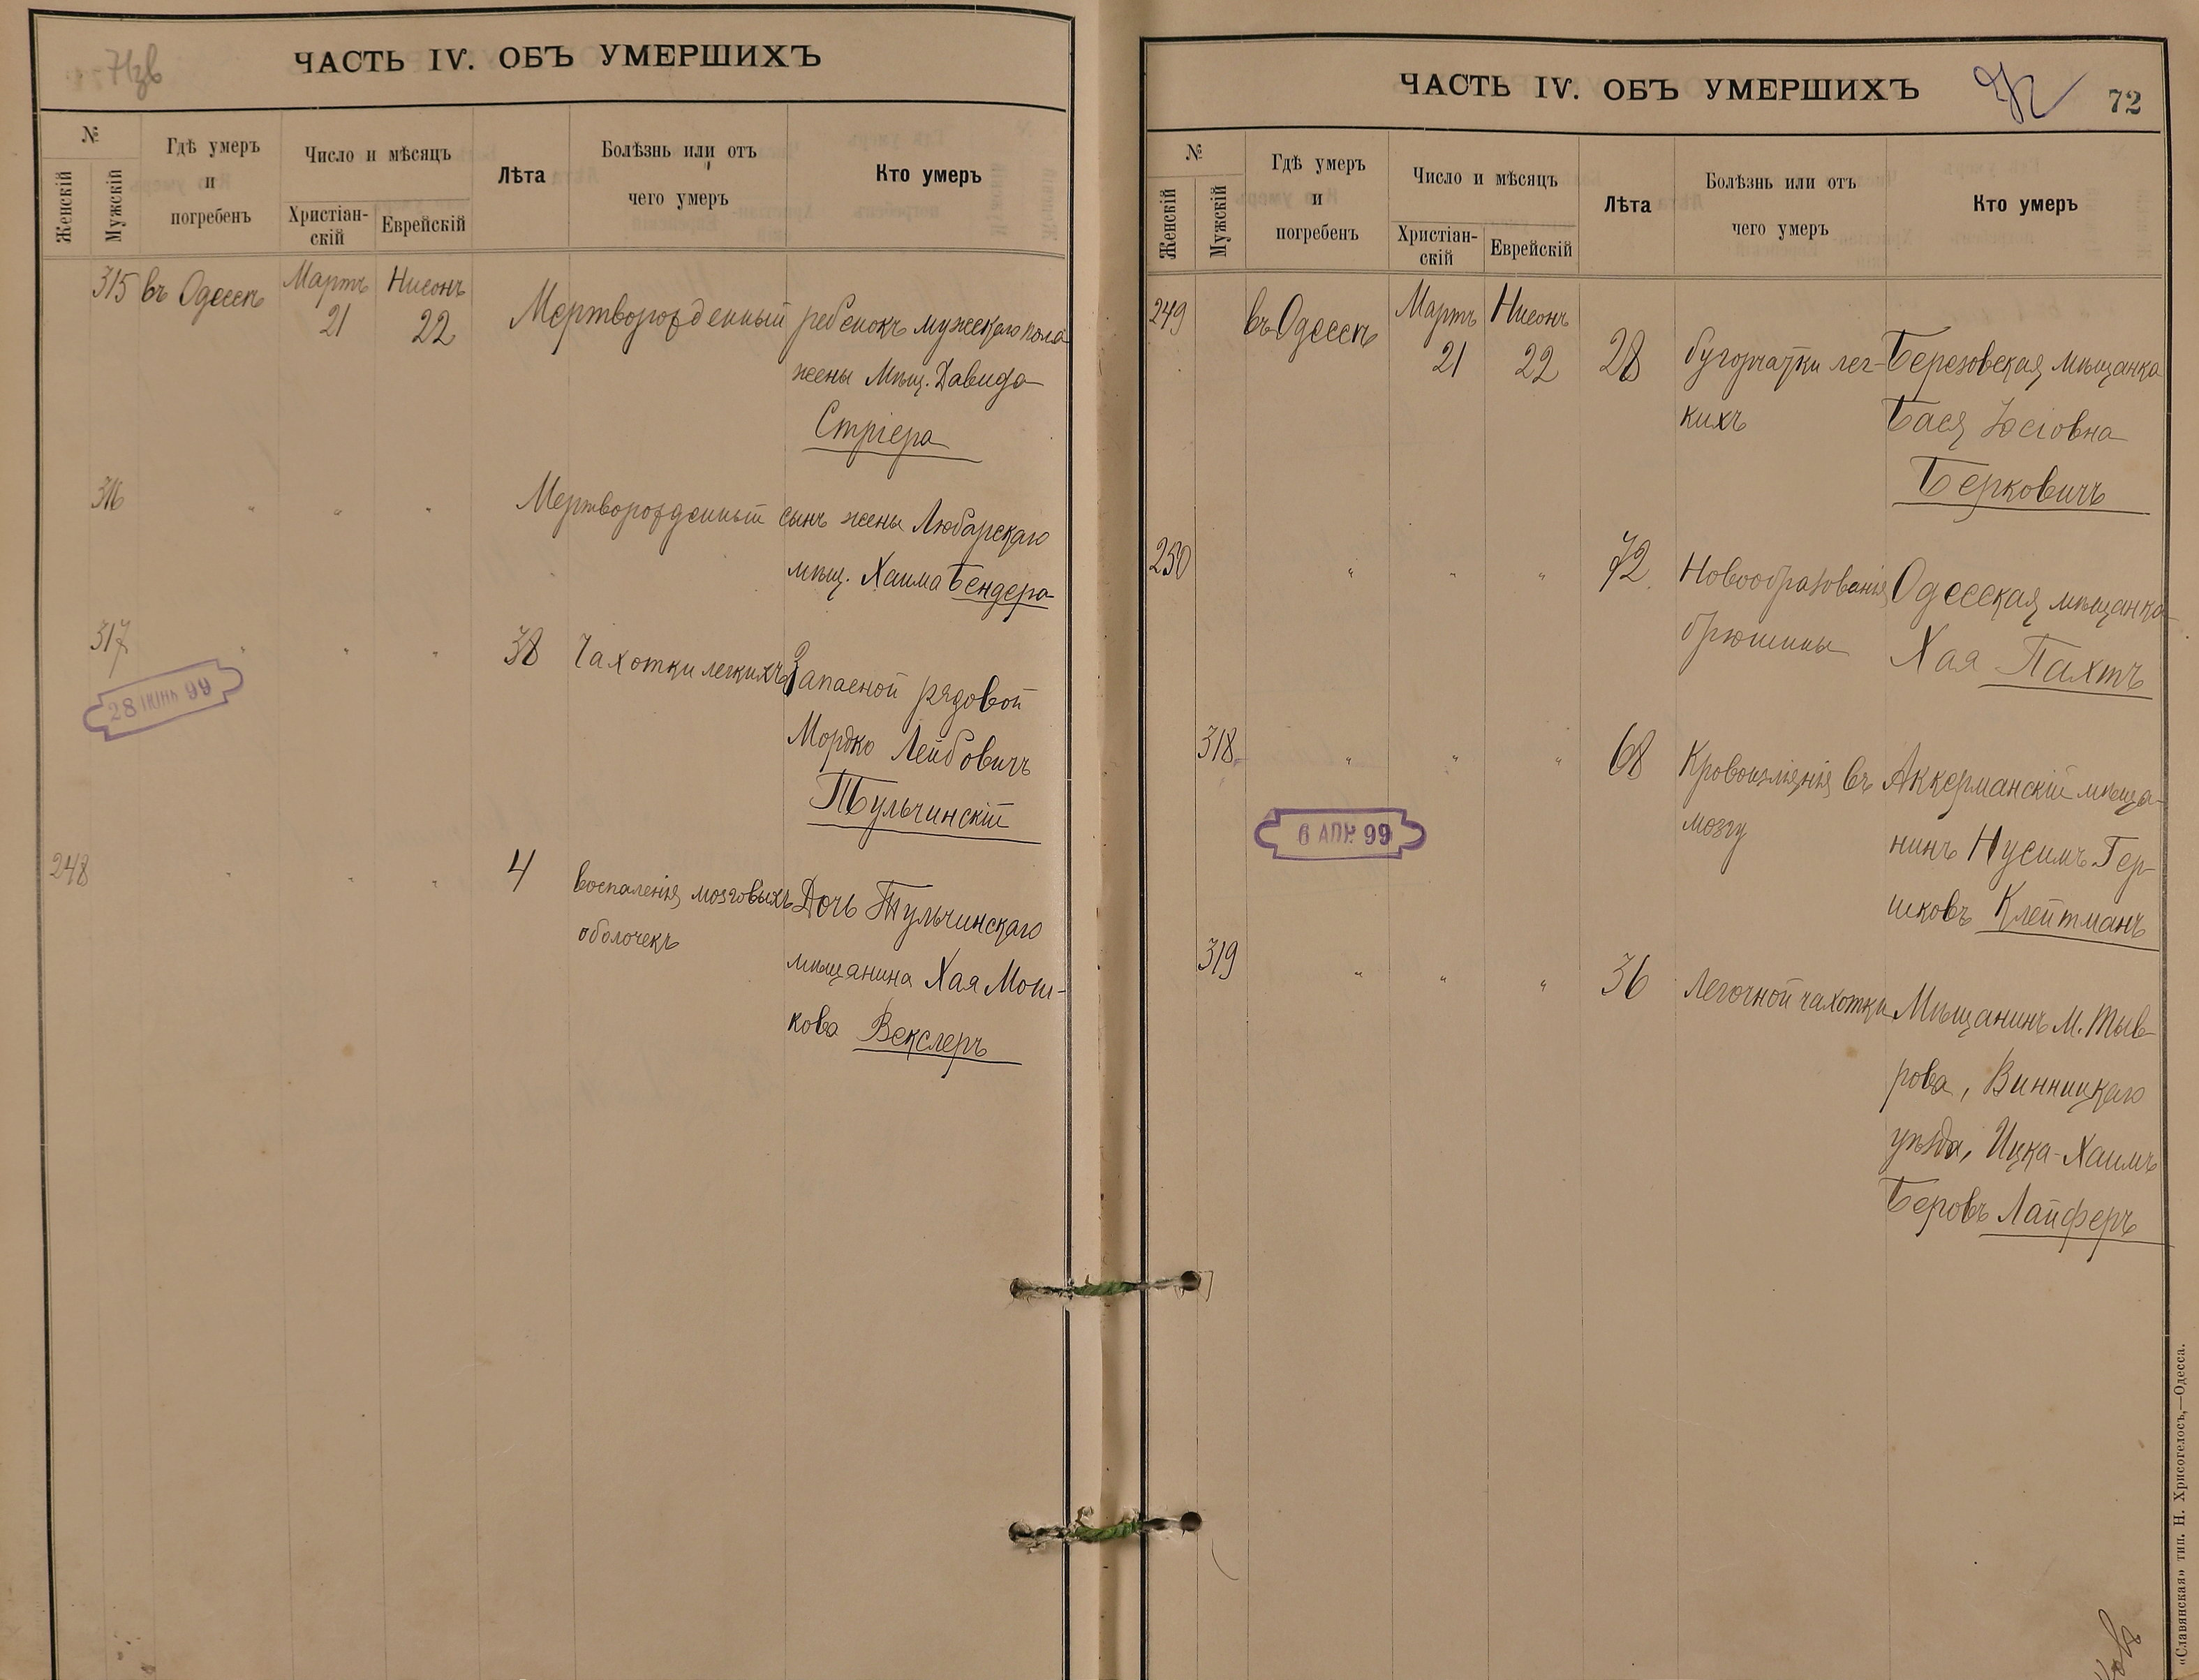 71зв
ЧАСТЬ IV. ОБЪ УМЕРШИХЪ
№
Женскій
Мужскій
Гдѣ умеръ
и
погребенъ
Число и мѣсяцъ
Христіан-
скій
Еврейскій
Лѣта
Болѣзнь или отъ
чего умеръ
Кто умеръ
315 въ Одессѣ Мартъ 21 Нисонъ 22 Мертворожденный ребенокъ мужскаго пола
жены Мѣщ. Давида
Стріера
316 " " " Мертворожденный сынъ жены Любарскаго
мѣщ. Хаима Бендера
317 " " " 38 Чахотки легкихъ Запасной рядовой
Мордко Лейбовичъ
Тульчинскій
28 ІЮНЬ 99
248 " " " 4 воспаленія мозговыхъ Дочь Тульчинскаго
оболочекъ
мѣщанина Хая Мош-
кова Векслеръ
ЧАСТЬ IV. ОБЪ УМЕРШИХЪ
72
№
Женскій
Мужскій
Гдѣ умеръ
и
погребенъ
Число и мѣсяцъ
Христіан-
скій
Еврейскій
Лѣта
Болѣзнь или отъ
чего умеръ
Кто умеръ
249 въ Одессѣ Мартъ 21 Нисонъ 22 28 бугорчатки лег- Березовская мѣщанка
кихъ Бася Іосіовна
Берковичъ
250 " " " 72 Новообразованія Одесская мѣщанка
брюшины Хая Пахтъ
318 " " " 68 Кровоизліянія въ Аккерманскій мѣща-
мозгу
нинъ Нусимъ Гер-
шковъ Клейтманъ
6 АПР. 99
319 " " " 36 Легочной чахотки Мѣщанинъ М. Тыв-
рова, Винницкаго
уѣзда, Ицка-Хаимъ
Беровъ Лайферъ
«Славянская» тип. Н. Хрисогелосъ,—Одесса.